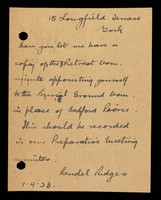 15 Longfield Terrace
York
Can you let me have a
copy of the Retreat Comm.
minute appointing yourself
to the Burial Ground Comm.
in place of Bedford Pierce.
This should be recorded
in our Preparative Meeting
minutes.
Rendel Ridges
1-9-23.